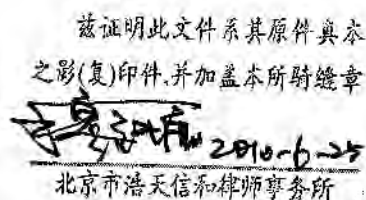 兹证明此文件系其原件真本
之影(复)印件,并加盖本所骑缝章
2010-6-25
北京市浩天信和律师事务所